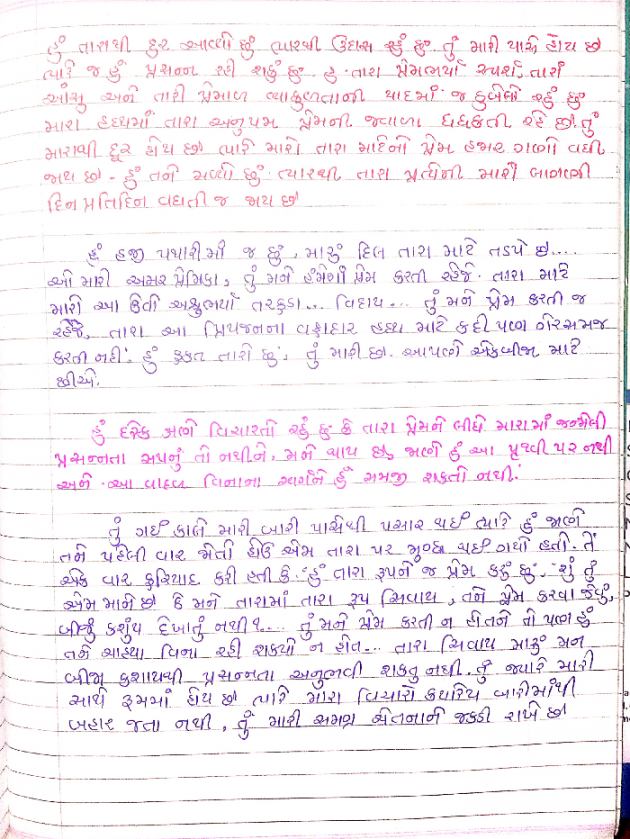 હું તારાથી દુર આવ્યો છું ત્યારથી ઉદાસ રહું છું. તું મારી પાસે હોય છે
ત્યારે જ હું પ્રસન્ન રહી શકું છું. હું તારા પ્રેમભર્યા સ્પર્શ, તારાં
આંસુ અને તારી પ્રેમાળ વ્યાકુળતાની યાદમાં જ ડુબેલો રહું છું
મારા હૃદયમાં તારા અનુપમ પ્રેમની જ્વાળા ધધકતી રહે છે. તું
મારાથી દૂર હોય છે ત્યારે મારો તારા માટેનો પ્રેમ હજાર ગણો વધી
જાય છે - હું તને મળ્યો છું ત્યારથી તારા પ્રત્યેની મારી લાગણી
દિન પ્રતિદિન વધતી જ જાય છે
હું હજી પથારીમાં જ છું, મારું દિલ તારા માટે તડપે છે....
ઓ મારી અમર પ્રેમિકા, તું મને હંમેશાં પ્રેમ કરતી રહેજે. તારા માટે
મારી આ કેવી અશ્રુભર્યા તરફડા... વિદાય... તું મને પ્રેમ કરતી જ
રહેજે, તારા આ પ્રિયજનના વફાદાર હૃદય માટે કદી પણ ગેરસમજ
કરતી નહીં. હું ફક્ત તારો છું, તું મારી છો. આપણે એકબીજા માટે
છીએ.
હું દરેક ક્ષણે વિચારતો રહું છું કે તારા પ્રેમને લીધે મારામાં જન્મેલી
પ્રસન્નતા સપનું તો નથીને, મને થાય છે, જાણે હું આ પૃથ્વી પર નથી
અને આ વાદળ વિનાના સ્વર્ગને હું સમજી શકતો નથી.
તું ગઈ કાલે મારી બારી પાસેથી પસાર થઈ ત્યારે હું જાણે
તને પહેલી વાર જોતો હોઉં એમ તારા પર મુગ્ધ થઈ ગયો હતો. તેં
એક વાર ફરિયાદ કરી હતી કે 'હું તારા રૂપને જ પ્રેમ કરું છું.' શું તું
એમ માને છે કે મને તારામાં તારા રૂપ સિવાય, તને પ્રેમ કરવા જેવું,
બીજું કશુંય દેખાતું નથી?... તું મને પ્રેમ કરતી ન હોતને તો પણ હું
તને ચાહ્યા વિના રહી શક્યો ન હોત... તારા સિવાય મારું મન
બીજા કશાયથી પ્રસન્નતા અનુભવી શકતુ નથી. તું જ્યારે મારી
સાથે રૂમમાં હોય છે ત્યારે મારા વિચારો ક્યારેય બારીમાંથી
બહાર જતા નથી, તું મારી સમગ્ર ચેતનાને જકડી રાખે છે